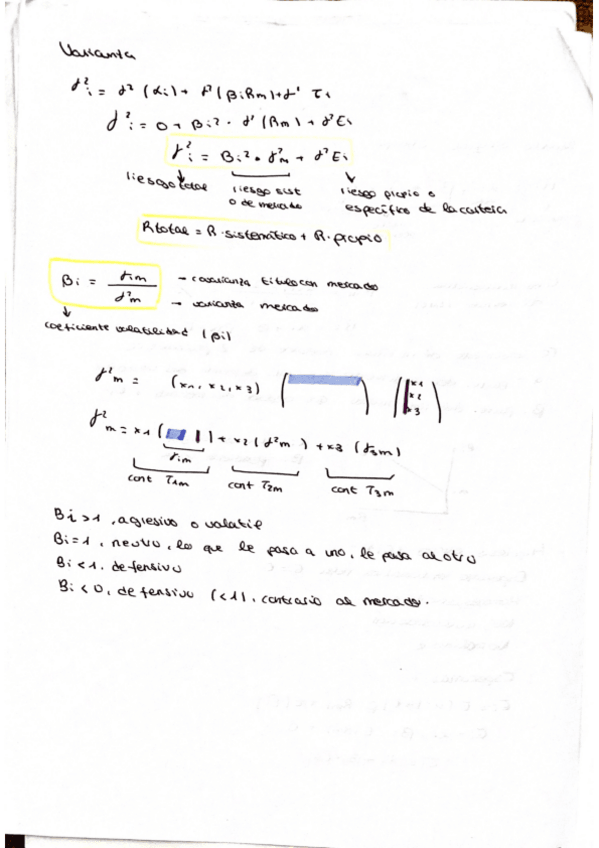 Varianza
σ²i = σ² (αi) + σ² (βi Rm) + σ² εi
σ²i = 0 + βi² · σ² (Rm) + σ² Ei
σ²i = βi² · σ²m + σ² Ei
riesgo total   riesgo sist o de mercado   riesgo propio o específico de la cartera
R total = R. sistemático + R. propio
βi = σim / σ²m
→ covarianza titulo con mercado
→ varianza mercado
coeficiente volatilidad (βi)
σ²m = (x1, x2, x3) ( ) ( x1 x2 x3 )
σ²m = x1 ( ) + x2 (σ²m) + x3 (σ3m)
σim
cont σ1m   cont σ2m   cont σ3m
βi > 1, agresivo o volatil
βi = 1, neutro, lo que le pasa a uno, le pasa al otro
βi < 1, defensivo
βi < 0, defensivo (<1), contrario al mercado.